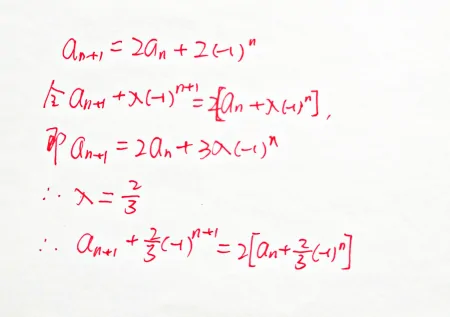 aₙ₊₁ = 2aₙ + 2(-1)ⁿ
令 aₙ₊₁ + λ(-1)ⁿ⁺¹ = 2[aₙ + λ(-1)ⁿ],
即 aₙ₊₁ = 2aₙ + 3λ(-1)ⁿ
∴ λ = 2/3
∴ aₙ₊₁ + 2/3(-1)ⁿ⁺¹ = 2[aₙ + 2/3(-1)ⁿ]